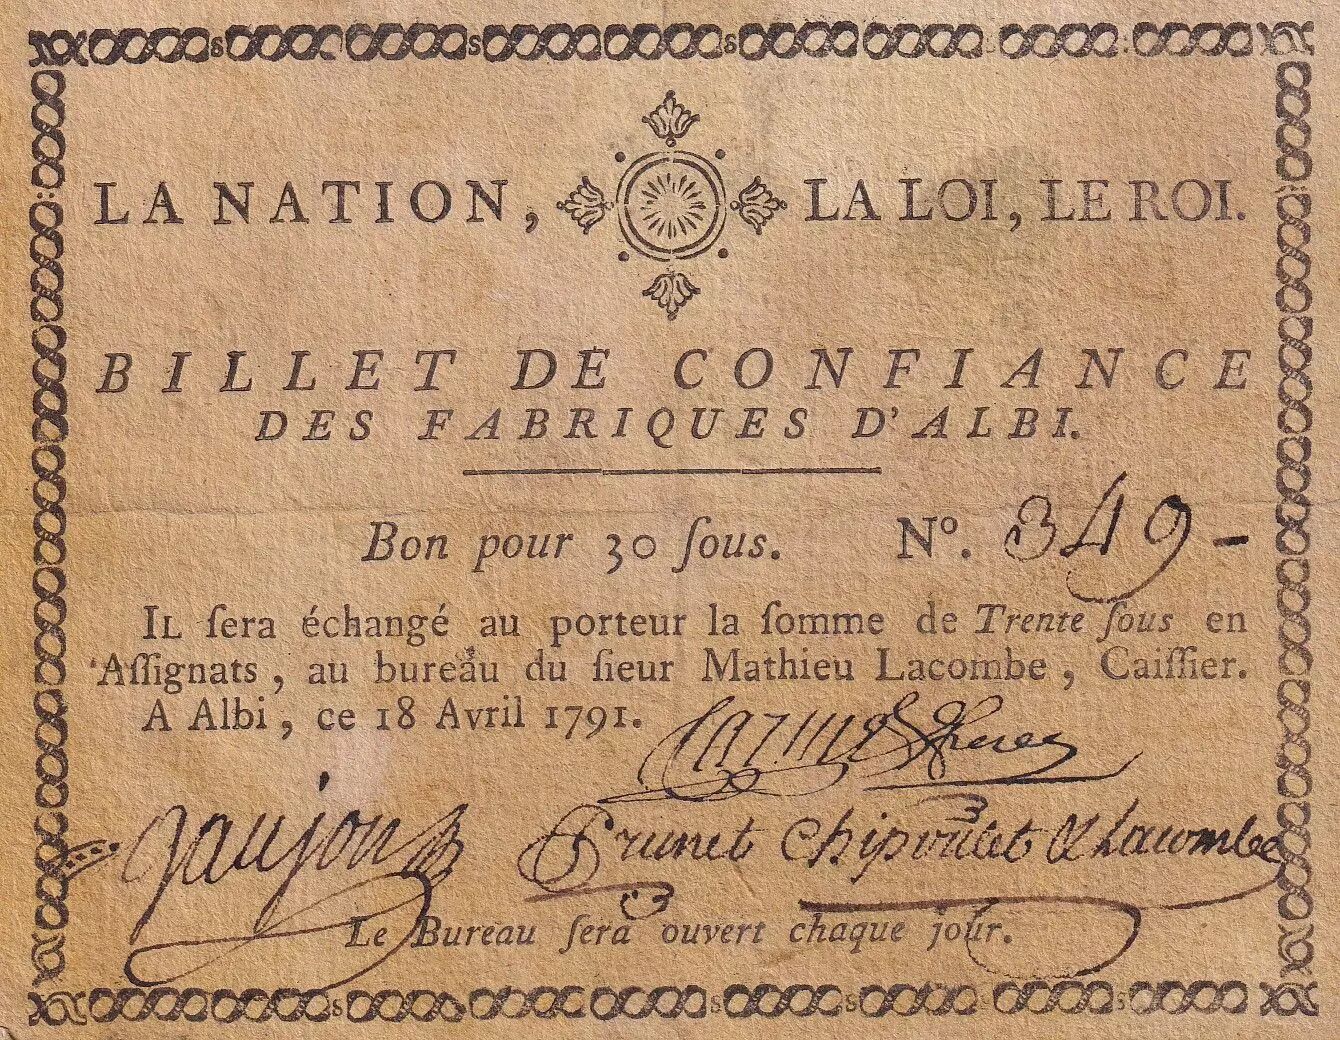 LA NATION, LA LOI, LE ROI.
BILLET DE CONFIANCE
DES FABRIQUES D'ALBI.
Bon pour 30 ſous. N°. 349 -
IL ſera échangé au porteur la ſomme de Trente ſous en
Aſſignats, au bureau du ſieur Mathieu Lacombe, Caiſſier.
A Albi, ce 18 Avril 1791.
Gaujon Prunet Chipoulet & Lacombe
Le Bureau ſera ouvert chaque jour.